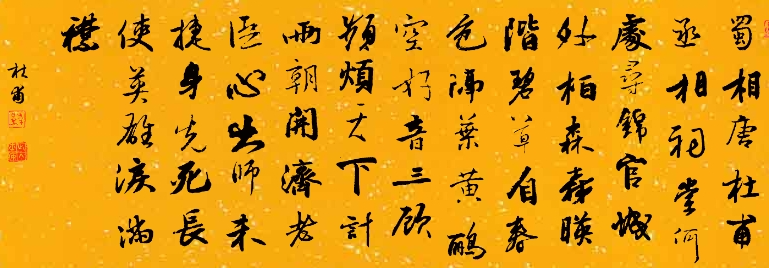 蜀相唐杜甫
丞相祠堂何
處尋錦官城
外柏森森暎
階碧草自春
色隔葉黃鸝
空好音三顧
頻煩天下計
兩朝開濟老
臣心出師未
捷身先死長
使英雄淚滿
襟
杜甫